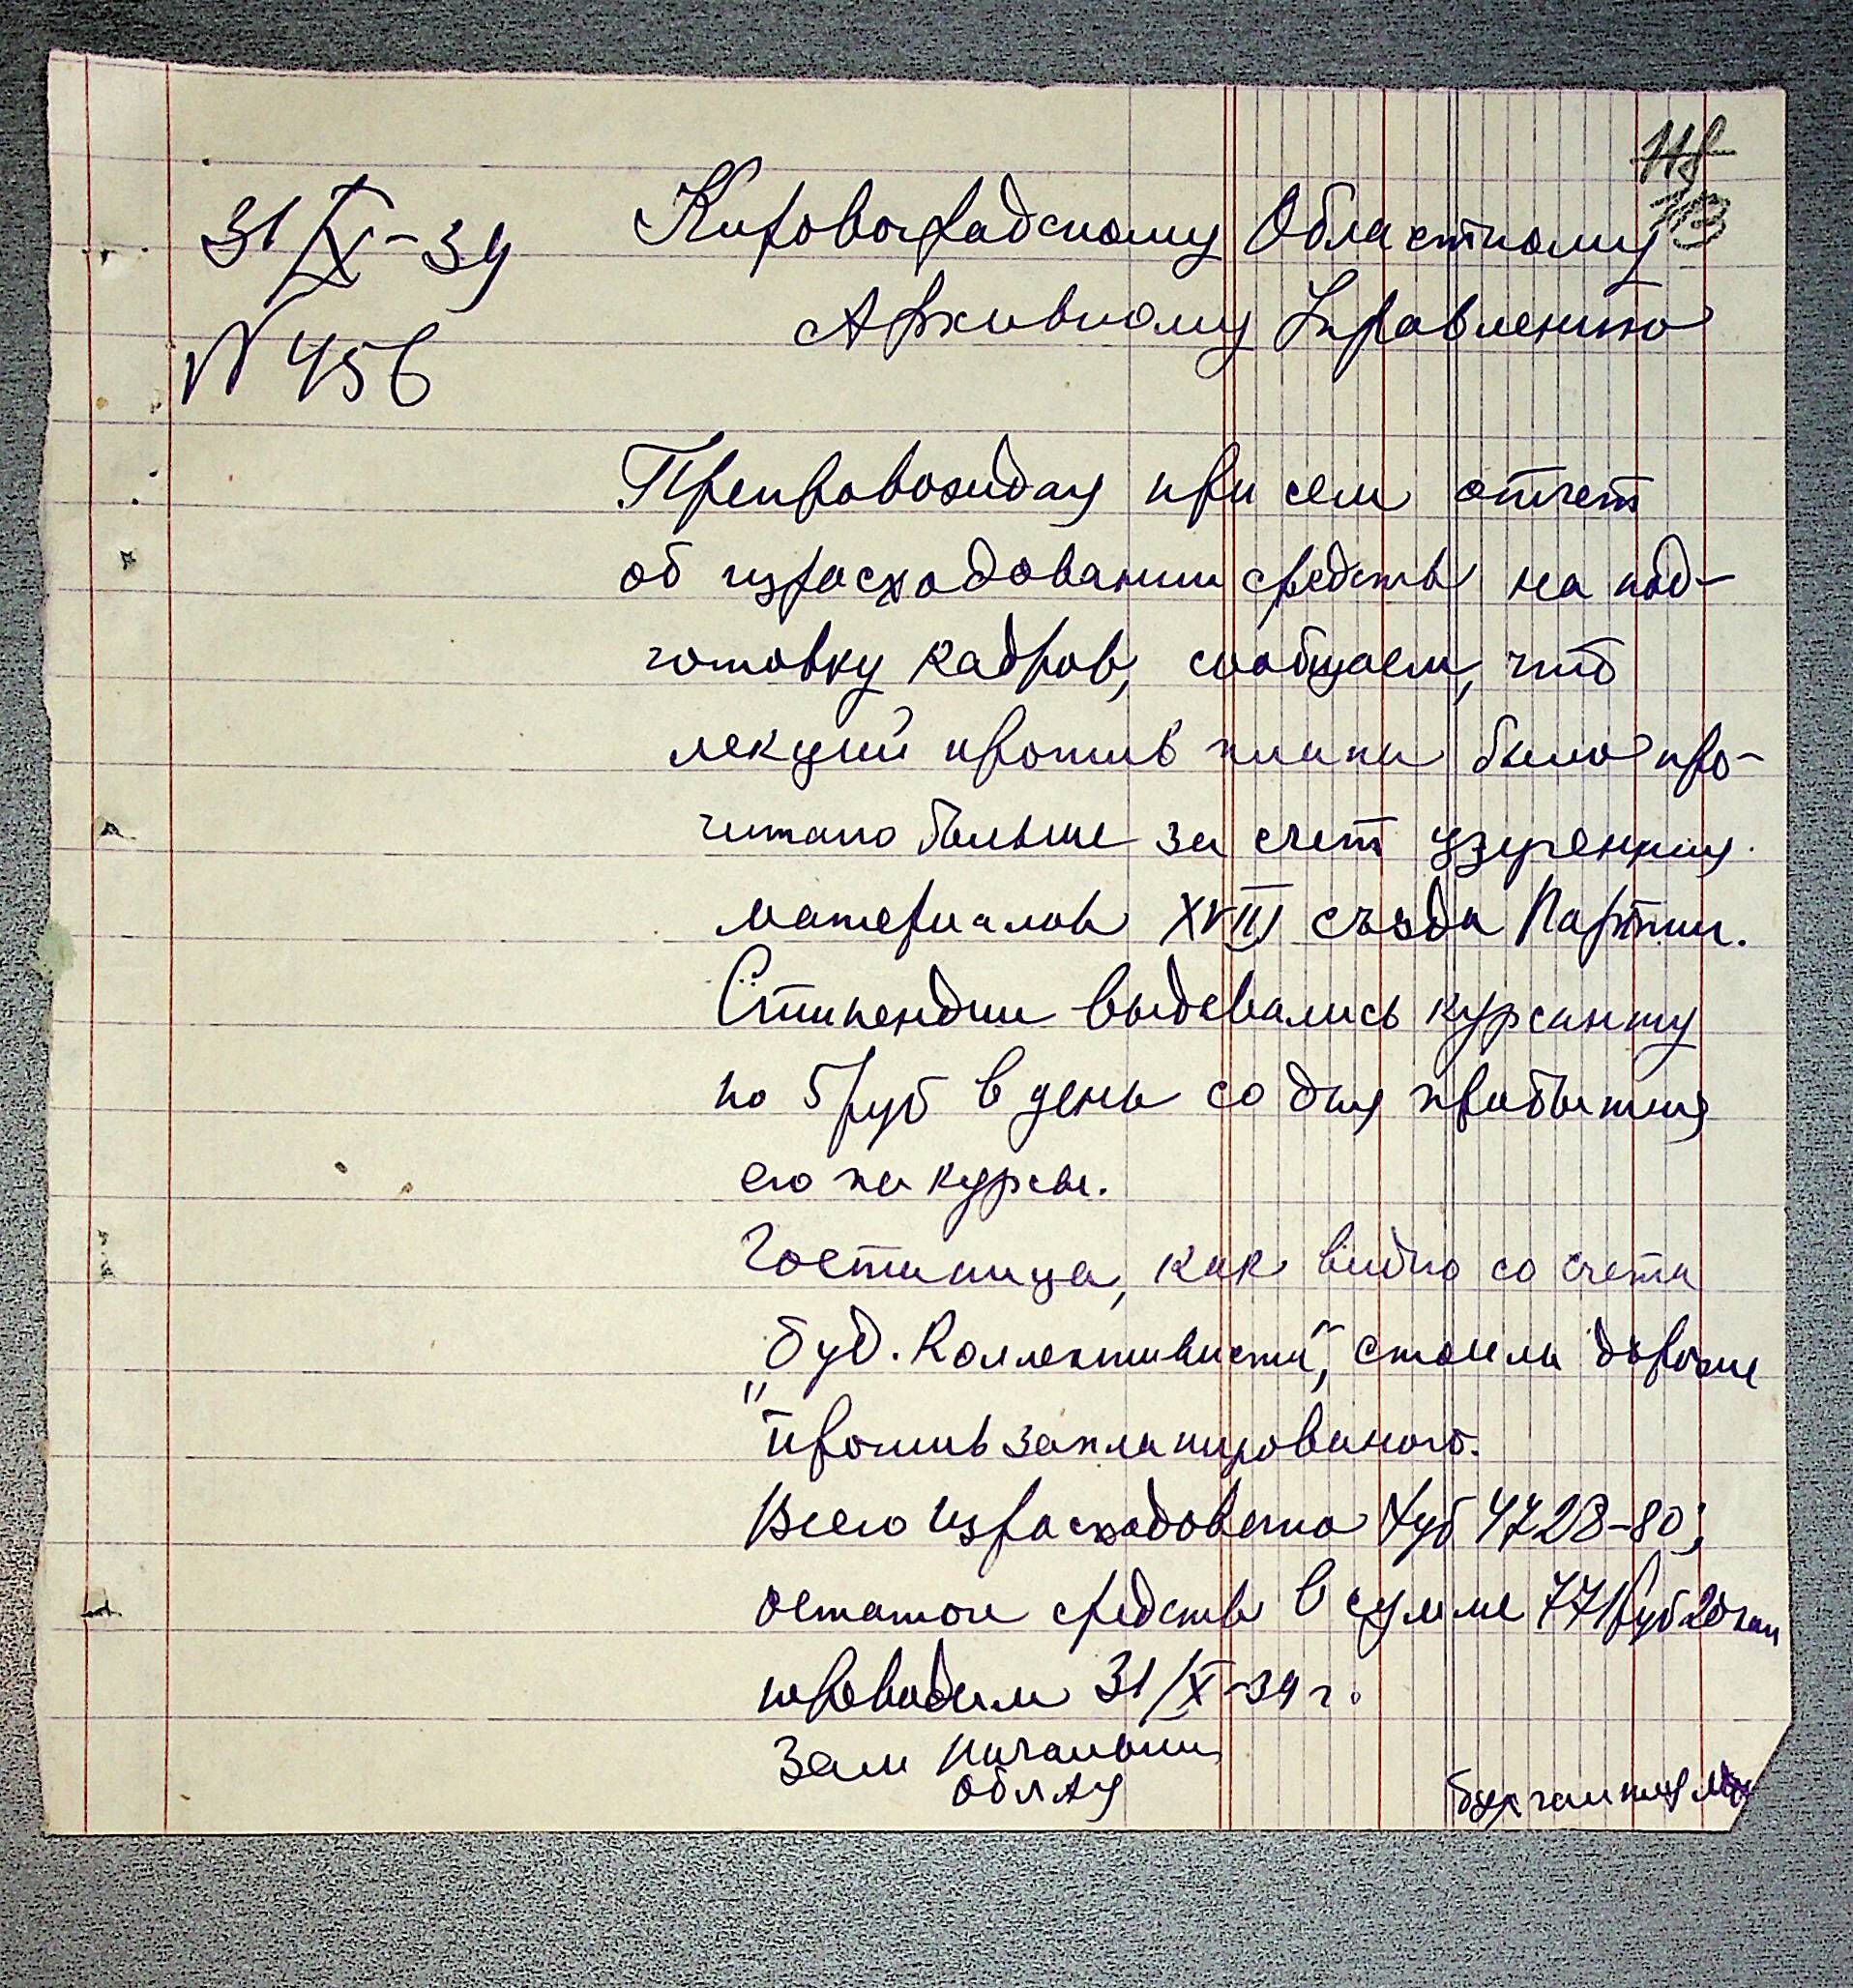 118
113
31/X-39
Кировоградскому Областному
N 456
Архивному Управлению
Препровождая при сем отчет
об израсходовании средств на под-
готовку кадров, сообщаем, что
лекций против плана было про-
читано больше за счет изучения
материалов XVIII съезда Партии.
Стипендии выдавались курсанту
по 5 руб в день со дня прибытия
его на курсы.
Гостиница, как видно со счета
буд. Коллективиста", стоила дороже
"против запланированого.
Всего израсходовано Руб 4728-80;
остаток средств в сумме 771 руб 20 коп
переводим 31/X-39 г.
Зам Начальник
ОблАУ
бухгалтер